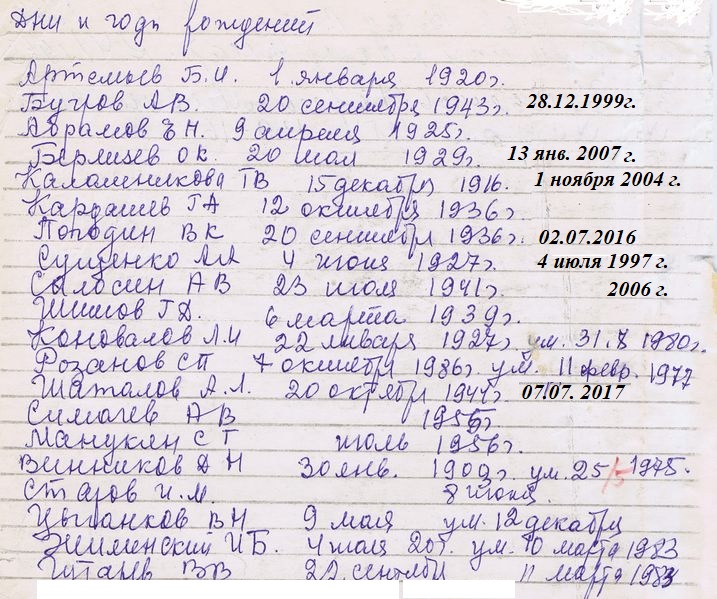 Дни и годы рождений
Артемьев Б.И. 1 января 1920г.
Бугров А В. 20 сентября 1943г. 28.12.1999г.
Абрамов Е Н. 9 апреля 1925г.
Берлизев О К. 20 мая 1929г. 13 янв. 2007 г.
Калашникова Т В 15 декабря 1916. 1 ноября 2004 г.
Кардашев Г А 12 октября 1936г
Погодин В К 20 сентября 1936г. 02.07.2016
Сущенко А А 4 июня 1927г. 4 июля 1997 г.
Сальосин А В 23 июля 1941г. 2006 г.
Шишов Г Д. 6 марта 1939г.
Коновалов Л.И 22 января 1927г ум. 31. 1980г.
Розанов С П 7 октября 1986г. ум. 11 февр. 1977
Шаталов А.Л. 20 октября 07.07. 2017
Симачев А В 1956г.
Манукян С Г июль 1956г.
Винников Д Н 30 янв. 1909г. ум. 25/5 1975.
Старов И.М. 8 июня.
Цыганков В Н 9 мая ум. 12 декабря
Зилинский И Б. 4 мая ум. 10 марта 1983
В В 22 сентяб 11 марта 1983